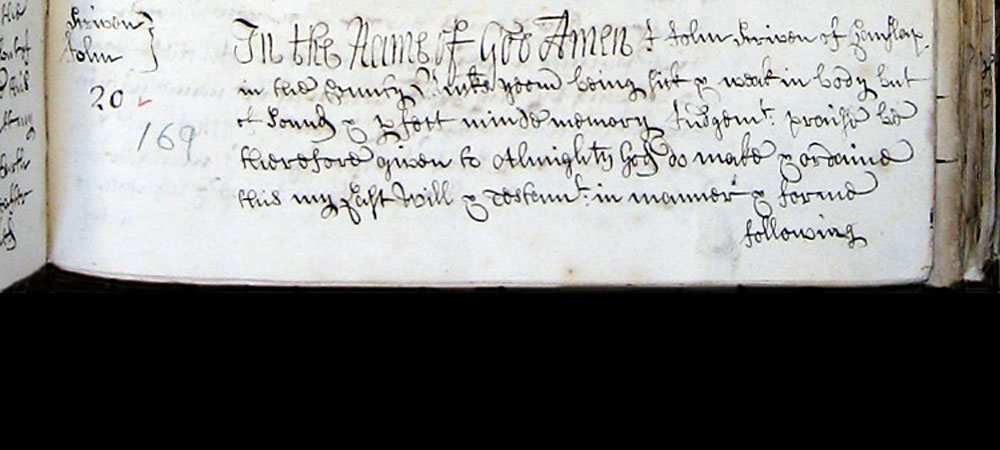 Scriven
John
20
169
In the Name of God Amen I John Scriven of
in the County of being sick & weak in body but
of Sound & pfect minde memory Judgemt: praise be
therefore given to Allmighty God do make & ordaine
this my Last Will & Testamt: in manner & forme
following